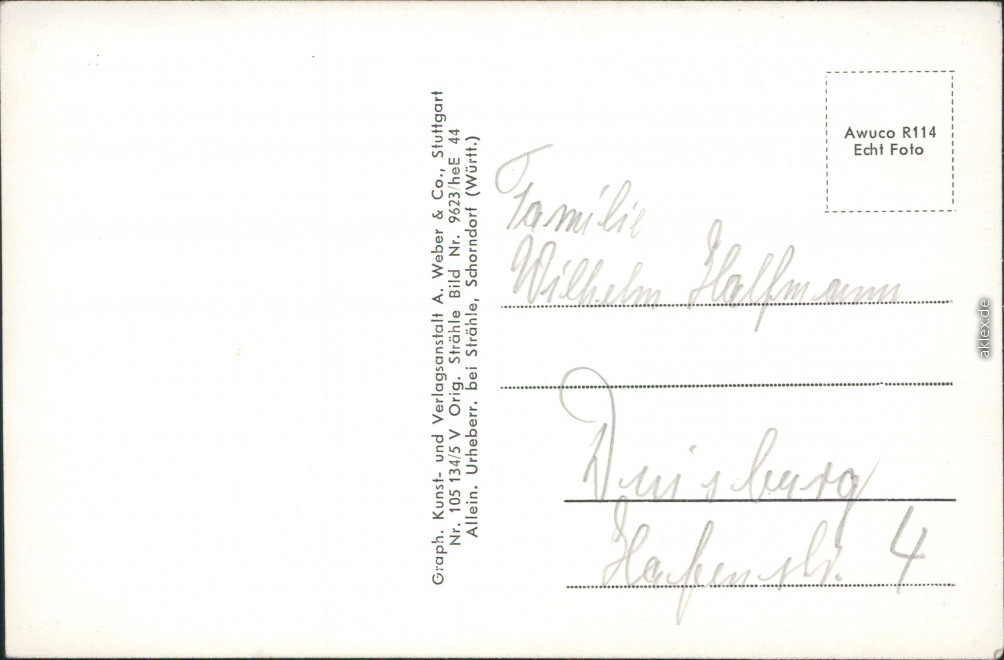 Graph. Kunst- und Verlagsanstalt A. Weber & Co., Stuttgart
Nr. 105 134/5 V Orig. Strähle Bild Nr. 9623/heE 44
Allein. Urheberr. bei Strähle, Schorndorf (Württ.)
Awuco R114
Echt Foto
Familie
Wilhelm Halfmann
Duisburg
Hafenstr. 4
aklex.de